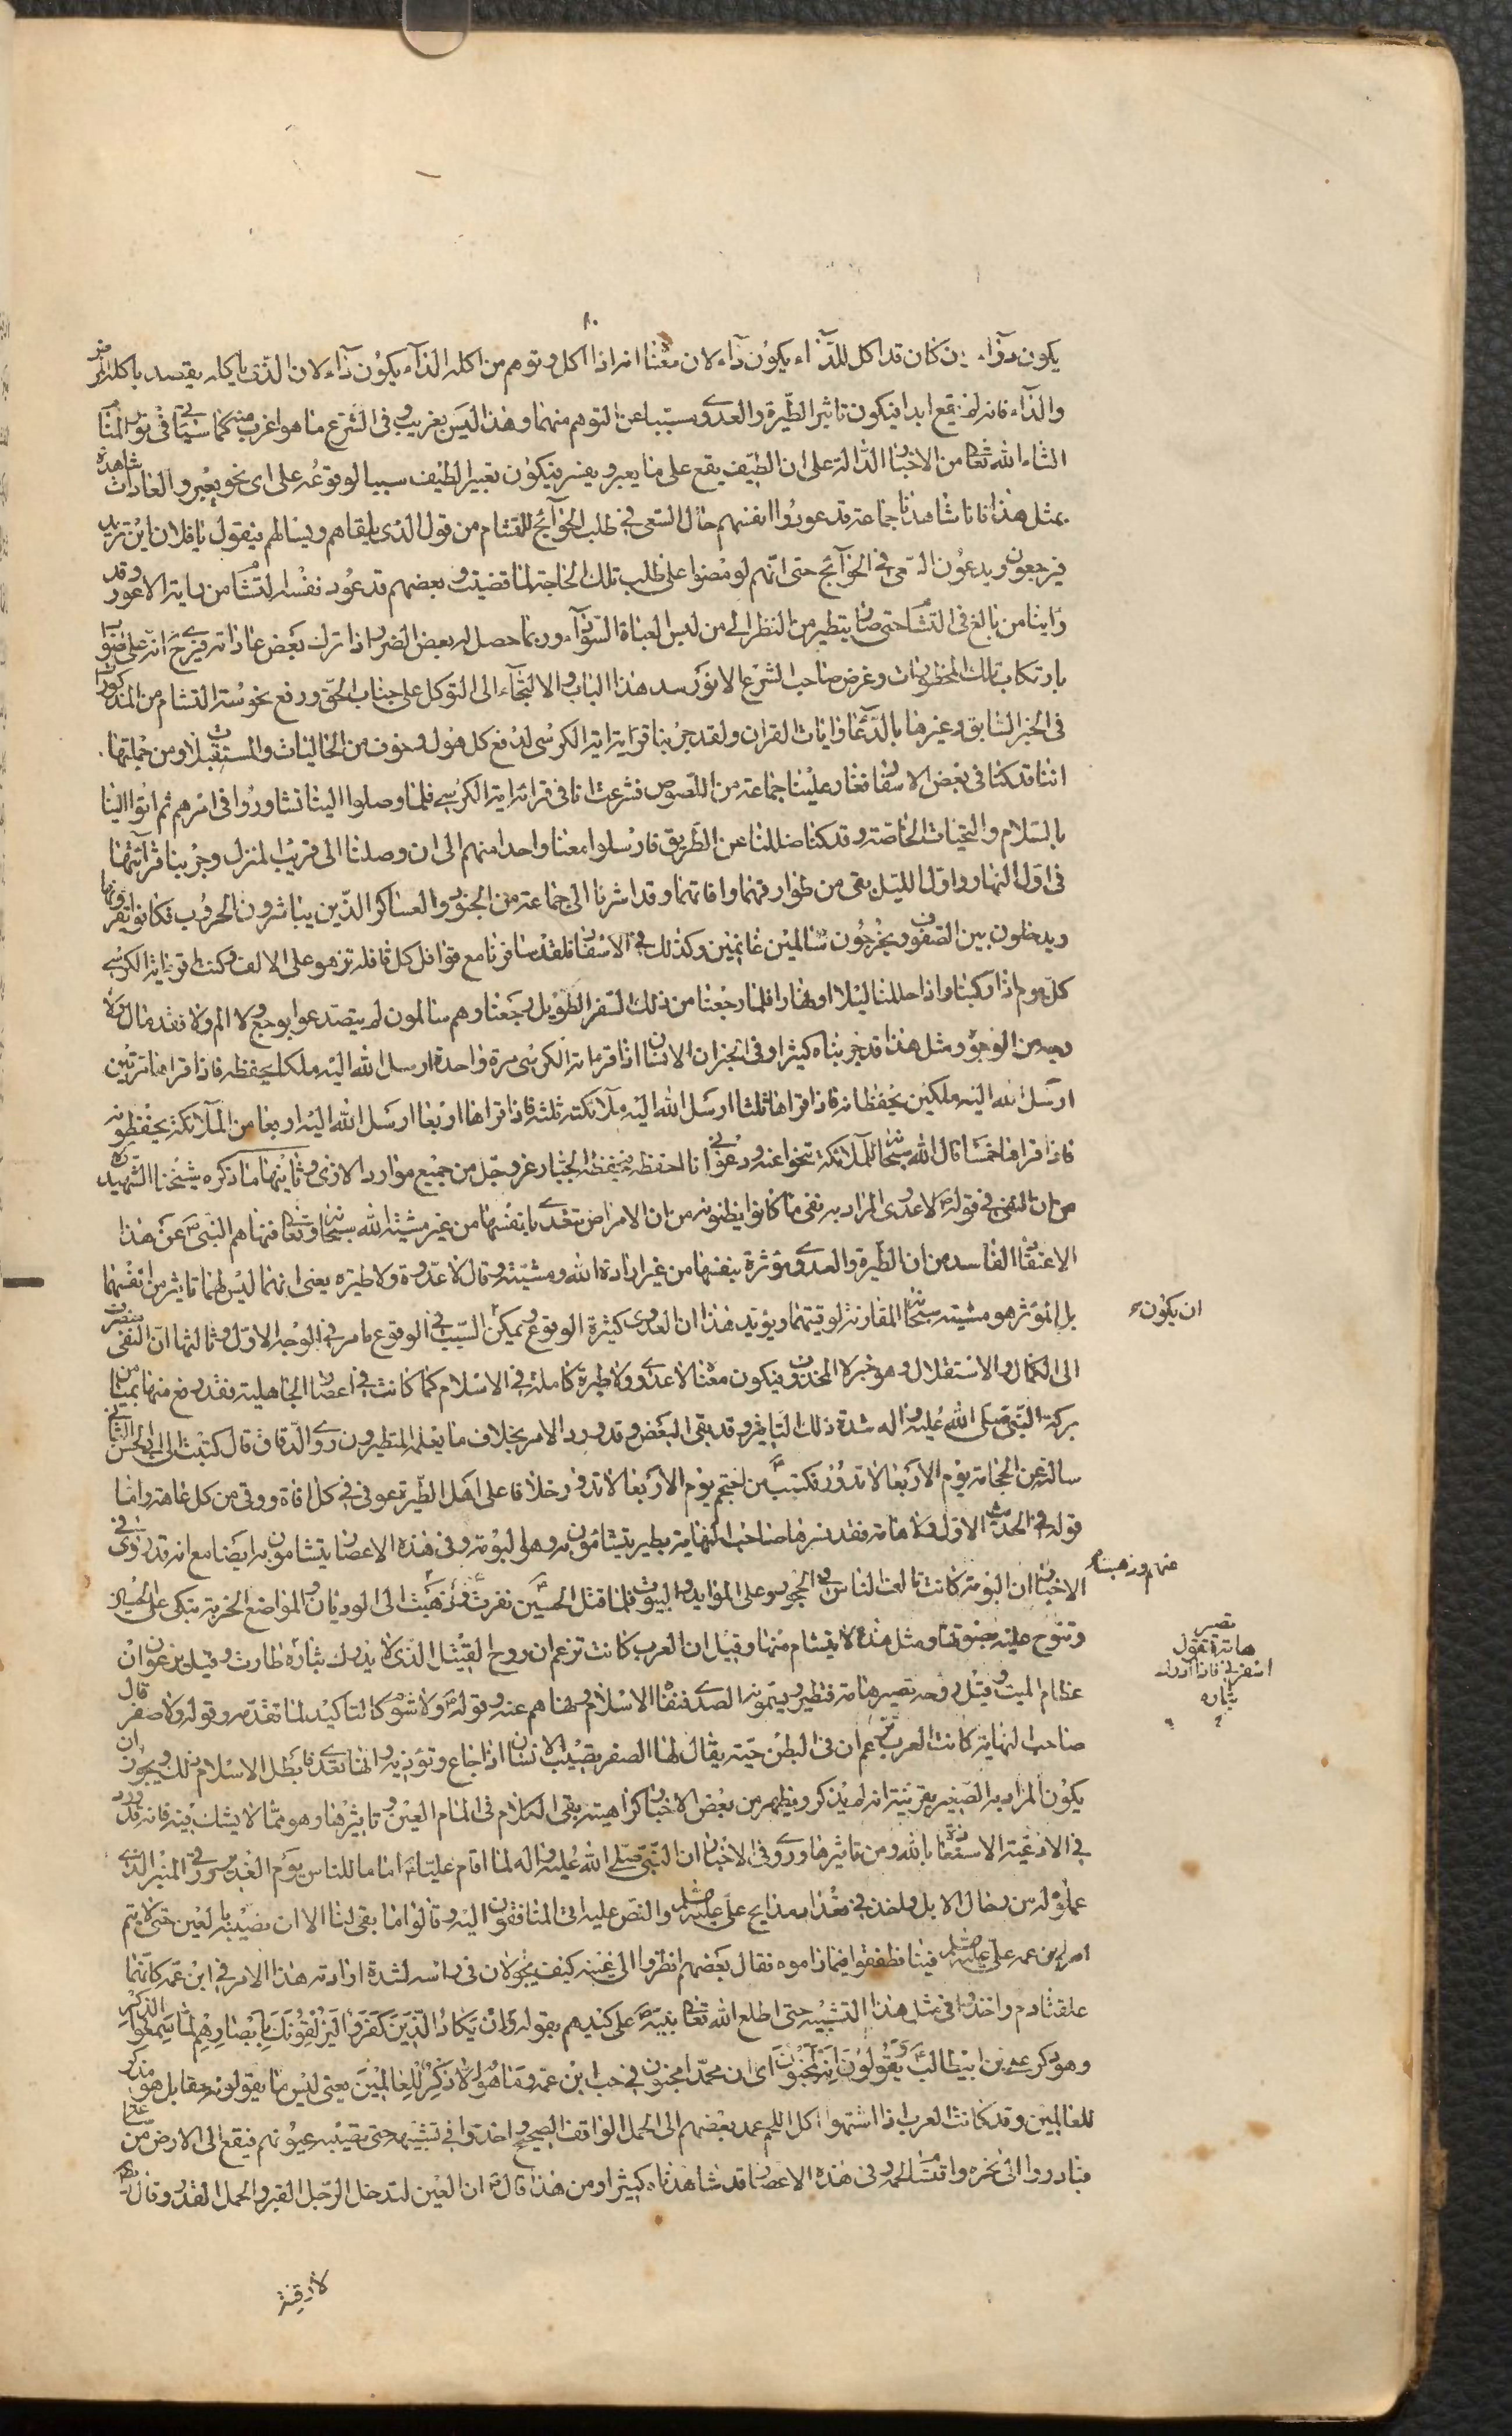 يكون دوآء وان كان قد اكل للدآء يكون دآء لان معنا انه اذا اكل وتوهم من اكله الدآء يكون دآء لان الذى ياكله يقصد باكله
والدآء فانه لم يقع ابدا فيكون تاثير الطيرة والعدوى مسببا عن التوهم منهما وهذا ليس بغريب وفى الشرع ما هو اغرب منه كما سياتى فى نور المنام
انشاء الله تعالى من الاخبار الدالة على ان الطيف يقع على ما يعبر ويفسر فيكون تعبير الطيف سببا لوقوعه على اى نحو يعبر والعادات شاهدة
بمثل هذا فانا شاهدنا جماعة قد عودوا انفسهم حال السعى فى طلب الحوآئج للتشام من قول الذى يلقاهم ويسالهم فيقول يا فلان اين تريد
فيرجعون ويدعون السعى فى الحوآئج حتى انهم لو مضوا على طلب تلك الحاجة لما قضيت وبعضهم قد عود نفسه التشام من رؤية الاعور وقد
راينا من بالغ فى التشام حتى صار يتطير من النظر الى من لبس العباة السودآء وربما حصل له بعض الضرر اذا ترك بعض عاداته
بارتكاب تلك المحظورات وغرض صاحب الشرع الانور سد هذا الباب والالتجآء الى التوكل على جناب الحق ورفع نحوسة التشام من المذكورات
فى الخبر السابق وغيرها بالدعاء وايات القران ولقد جربنا قراءة اية الكرسى لدفع كل هول وخوف من الحاليات والمستقبلات ومن جملتها
اننا قد كنا فى بعض الاسفار فغار علينا جماعة من اللصوص فشرعت انا فى قرائة اية الكرسى فلما وصلوا الينا تشاوروا فى امرهم ثم اتوا الينا
بالسلام والتحيات الخاصة وقد كنا ضللنا عن الطريق فارسلوا معنا واحدا منهم الى ان وصلنا الى قريب المنزل وجربنا قرآئتها
فى اول النهار واول الليل تقى من طوارقهما وافاتهما وقد اشرنا الى جماعة من الجنود والعساكر الذين يباشرون الحروب فكانوا يقرونها
ويدخلون بين الصفوف ويخرجون سالمين غانمين وكذلك فى الاسفار فلقد سافرنا مع قوافل كل قافلة تزهو على الالف وكنت اقرء اية الكرسى
كل يوم اذا ركبنا واذا حللنا ليلا او نهارا فلما رجعنا من ذلك السفر الطويل رجعنا وهم سالمون لم يتصدعوا بوجع ولا الم ولا نقد مال
بوجه من الوجوه ومثل هذا قد جربناه كثيرا وفى الخبر ان الانسان اذا قرء اية الكرسى مرة واحدة ارسل الله اليه ملكا يحفظه فاذا قراها مرتين
ارسل الله اليه ملكين يحفظانه فاذا قراها ثلثا ارسل الله اليه ملآئكة ثلثة فاذا قراها اربعا ارسل الله اليه اربعا من الملآئكة يحفظونه
فاذا قراها خمسا قال الله سبحانه للملآئكة تنحوا عنه ودعونى انا احفظه فيحفظه الجبار عز وجل من جميع موارد الاذى وثانيها ما ذكره شيخنا الشهيد ره
من ان النفى فى قوله لا عدوى المراد به نفى ما كانوا يظنونه من ان الامراض تتعدى بانفسها من غير مشية الله سبحانه وتعالى فنهاهم النبى ص عن هذا
الاعتقاد الفاسد من ان الطيرة والعدوى مؤثرة بنفسها من غير ارادة الله ومشيته وقال لا عدوى ولا طيرة يعنى انهما ليس لهما تاثير من انفسهما
بل المؤثر هو مشيته سبحانه المقارنة لوقتهما ويؤيد هذا ان العدوى كثيرة الوقوع ويمكن السبب فى الوقوع ما مر فى الوجه الاول وثالثها ان النفى منصرف
ان يكون
الى الكمال والاستقلال وهو خبر لا المحذوف فيكون معناه لا عدوى ولا طيرة كاملة فى الاسلام كما كانت فى اعصار الجاهلية فقد رفع منها بميامن
بركة النبى صلى الله عليه واله شدة ذلك التاثير وقد بقى البعض وقد ورد الامر بخلاف ما يفعله المتطيرون روى الدقاق قال كتبت الى ابى الحسن الثانى
ساله عن الحجامة يوم الاربعاء لا تدور فكتب من احتجم يوم الاربعاء لا تدور خلافا على اهل الطيرة عوفى من كل افة ووقى من كل عاهة واما
قوله فى الحديث الاول ولا هامة فقد فسرها صاحب النهاية بطير يتشامون به وهى البومة وفى هذه الاعصار يتشامون به ايضا مع انه قد روى فى
الاخبار ان البومة كانت تالف الناس وتجلس على الموايد والبيوت فلما قتل الحسين نفرت وذهبت الى الوديان والمواضع الخربة تبكى على الحسين
عنهم وذهبت
وتنوح عليه بصوتها ومثل هذه لا يتشام منها وقيل ان العرب كانت تزعم ان روح القتيل الذى لا يدرك بثاره طارت وقيل يزعمون ان
تصير
هامة فتقول
اسقونى فاذا ادرك
بثاره
عظام الميت وقيل روحه تصير هامة فتطير ويسمونه الصدى فنفاه الاسلام ونهاهم عنه وقوله ولا شوم كالتاكيد لما تقدم وقوله ولا صفر قال
صاحب النهاية كانت العرب تزعم ان فى البطن حية يقال لها الصفر تصيب الانسان اذا جاع وتؤذيه وانها تعدى فابطل الاسلام ذلك ويجوز ان
يكون المراد به الصفير بقرينة انه لم يذكر ويظهر من بعض الاخبار كراهيته بقى الكلام فى المنام العين وتاثيرها وهو مما لا يشك فيه فانه قد ورد
فى الادعية الاستعاذة بالله ومن تاثيرها وروى فى الاخبار ان النبى صلى الله عليه واله لما اقام عليا ع اماما للناس يوم الغدير ورقى المنبر الذى
عملوه له من رحال الابل واخذ فى تعداد مدايح على عليه السلام والنص عليه اتى المنافقون اليه وقالوا ما بقى لنا الا ان نصيبه بالعين حتى لا يتم
امر ابن عمه على عليه السلام فينا فطفقوا فيما راموه فقال بعضهم انظروا الى عينيه كيف يجولان فى راسه لشدة ارادته هذا الامر فى ابن عمه كانهما
علقتا دم واخذوا فى مثل هذا التشبيه حتى اطلع الله تعالى نبيه ص على كيدهم بقوله وَاِنْ يَكَادُ الَّذِينَ كَفَرُوا لَيُزْلِقُونَكَ بِاَبْصَارِهِمْ لَمَّا سَمِعُوا الذِّكْرَ
وهو ذكر على بن ابيطالب ع وَيَقُولُونَ اِنَّهُ لَمَجْنُونٌ اى ان محمدا مجنون فى حب ابن عمه وَمَا هُوَ اِلَّا ذِكْرٌ لِلْعَالَمِينَ يعنى ليس ما يقولونه حقا بل هو مذكر
للعالمين وقد كانت العرب اذا اشتهوا اكل اللحم عمد بعضهم الى الجمل الواقف الصحيح واخذوا فى تشبيهه حتى تصيبه عيونهم فيقع الى الارض من
فبادروا الى نحره واقتسام لحمه وفى هذه الاعصار قد شاهدناه كثيرا ومن هذا قال ص ان العين لتدخل الرجل القبر والجمل القدر وقال